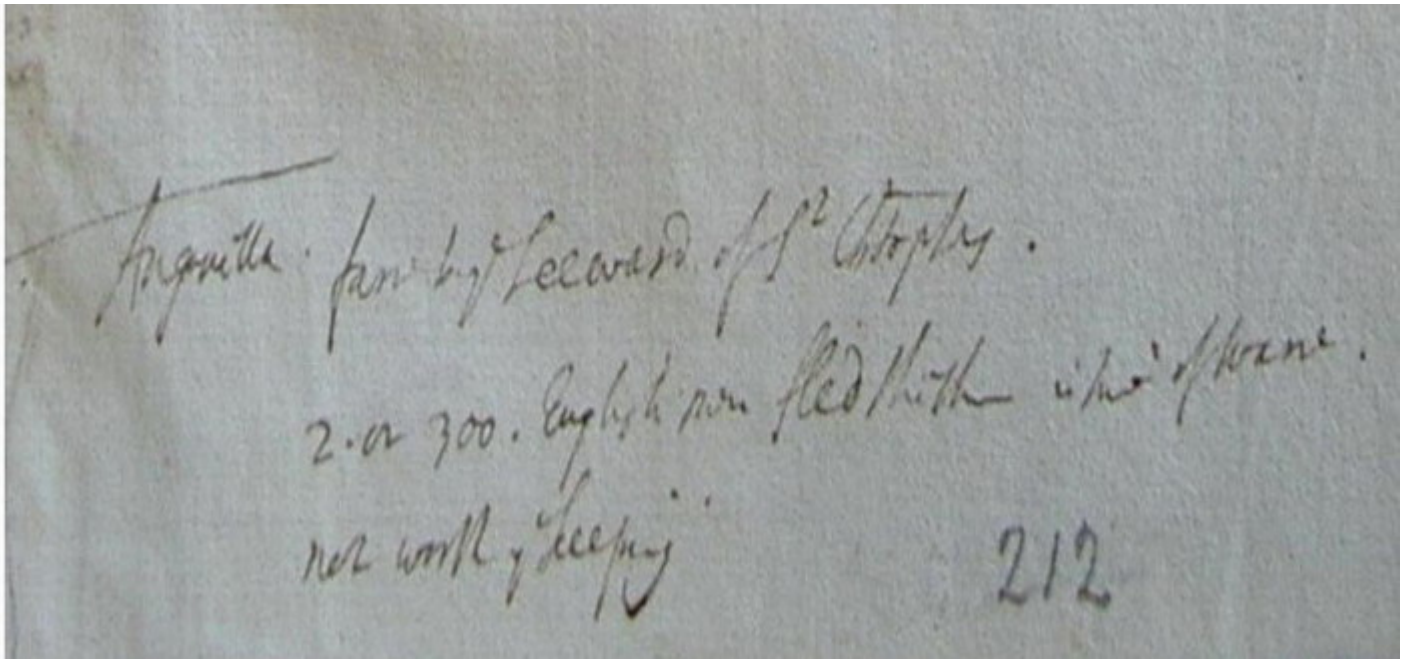 Anguilla. farr to yᵉ Leeward of Sᵗ Cristophrs.
2. or 300. English men fled thither in time of warre.
not worth yᵉ keeping
212